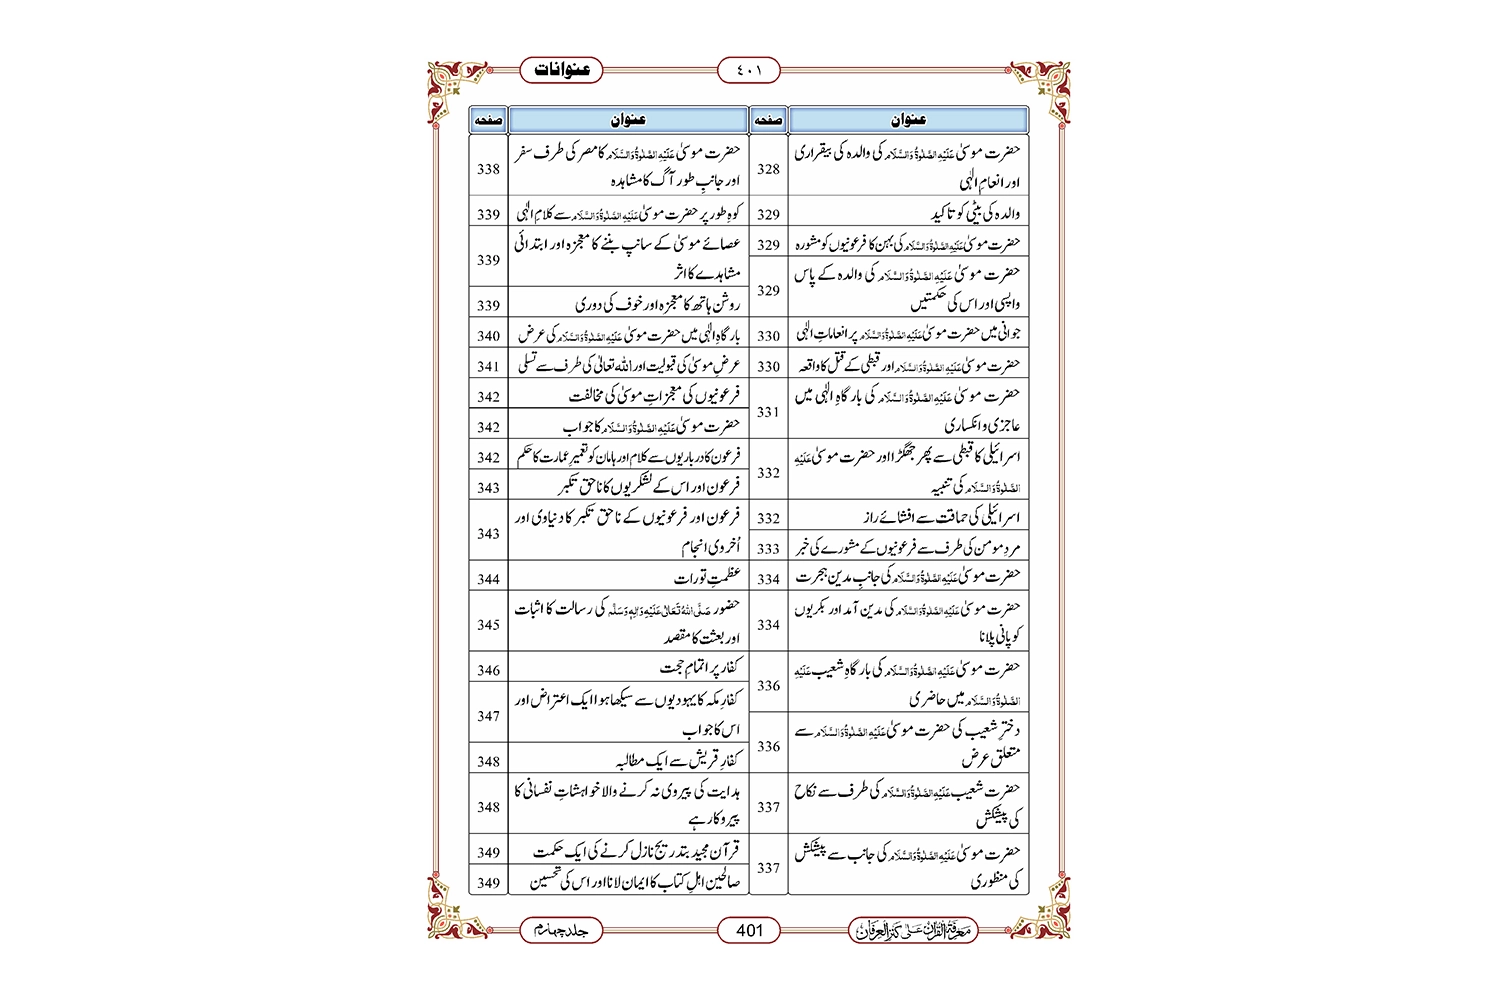 عنوانات
٤٠١
عنوان
صفحہ
حضرت موسیٰ عَلَیْہِ الصَّلٰوۃُ وَالسَّلَام کی والدہ کی بیقراری
اور انعامِ الٰہی
328
والدہ کی بیٹی کو تاکید
329
حضرت موسیٰ عَلَیْہِ الصَّلٰوۃُ وَالسَّلَام کی بہن کا فرعونیوں کو مشورہ
329
حضرت موسیٰ عَلَیْہِ الصَّلٰوۃُ وَالسَّلَام کی والدہ کے پاس
واپسی اور اس کی حکمتیں
329
جوانی میں حضرت موسیٰ عَلَیْہِ الصَّلٰوۃُ وَالسَّلَام پر انعاماتِ الٰہی
330
حضرت موسیٰ عَلَیْہِ الصَّلٰوۃُ وَالسَّلَام اور قبطی کے قتل کا واقعہ
330
حضرت موسیٰ عَلَیْہِ الصَّلٰوۃُ وَالسَّلَام کی بارگاہِ الٰہی میں
عاجزی و انکساری
331
اسرائیلی کا قبطی سے پھر جھگڑا اور حضرت موسیٰ عَلَیْہِ
الصَّلٰوۃُ وَالسَّلَام کی تنبیہ
332
اسرائیلی کی حماقت سے افشائے راز
332
مردِ مومن کی طرف سے فرعونیوں کے مشورے کی خبر
333
حضرت موسیٰ عَلَیْہِ الصَّلٰوۃُ وَالسَّلَام کی جانبِ مدین ہجرت
334
حضرت موسیٰ عَلَیْہِ الصَّلٰوۃُ وَالسَّلَام کی مدین آمد اور بکریوں
کو پانی پلانا
334
حضرت موسیٰ عَلَیْہِ الصَّلٰوۃُ وَالسَّلَام کی بارگاہِ شعیب عَلَیْہِ
الصَّلٰوۃُ وَالسَّلَام میں حاضری
336
دخترِ شعیب کی حضرت موسیٰ عَلَیْہِ الصَّلٰوۃُ وَالسَّلَام سے
متعلق عرض
336
حضرت شعیب عَلَیْہِ الصَّلٰوۃُ وَالسَّلَام کی طرف سے نکاح
کی پیشکش
337
حضرت موسیٰ عَلَیْہِ الصَّلٰوۃُ وَالسَّلَام کی جانب سے پیشکش
کی منظوری
337
عنوان
صفحہ
حضرت موسیٰ عَلَیْہِ الصَّلٰوۃُ وَالسَّلَام کا مصر کی طرف سفر
اور جانبِ طور آگ کا مشاہدہ
338
کوہِ طور پر حضرت موسیٰ عَلَیْہِ الصَّلٰوۃُ وَالسَّلَام سے کلامِ الٰہی
339
عصائے موسیٰ کے سانپ بننے کا معجزہ اور ابتدائی
مشاہدے کا اثر
339
روشن ہاتھ کا معجزہ اور خوف کی دوری
339
بارگاہِ الٰہی میں حضرت موسیٰ عَلَیْہِ الصَّلٰوۃُ وَالسَّلَام کی عرض
340
عرضِ موسیٰ کی قبولیت اور اللہ تعالیٰ کی طرف سے تسلی
341
فرعونیوں کی معجزاتِ موسیٰ کی مخالفت
342
حضرت موسیٰ عَلَیْہِ الصَّلٰوۃُ وَالسَّلَام کا جواب
342
فرعون کا درباریوں سے کلام اور ہامان کو تعمیرِ عمارت کا حکم
342
فرعون اور اس کے لشکریوں کا ناحق تکبر
343
فرعون اور فرعونیوں کے ناحق تکبر کا دنیاوی اور
اُخروی انجام
343
عظمتِ تورات
344
حضور صَلَّی اللہُ تَعَالٰی عَلَیْہِ وَاٰلِہٖ وَسَلَّم کی رسالت کا اثبات
اور بعثت کا مقصد
345
کفار پر اتمامِ حجت
346
کفارِ مکہ کا یہودیوں سے سیکھا ہوا ایک اعتراض اور
اس کا جواب
347
کفارِ قریش سے ایک مطالبہ
348
ہدایت کی پیروی نہ کرنے والا خواہشاتِ نفسانی کا
پیروکار ہے
348
قرآن مجید بتدریج نازل کرنے کی ایک حکمت
349
صالحین اہلِ کتاب کا ایمان لانا اور اس کی تحسین
349
معرفۃ القرآن علٰی کنز العرفان
401
جلد چہارم